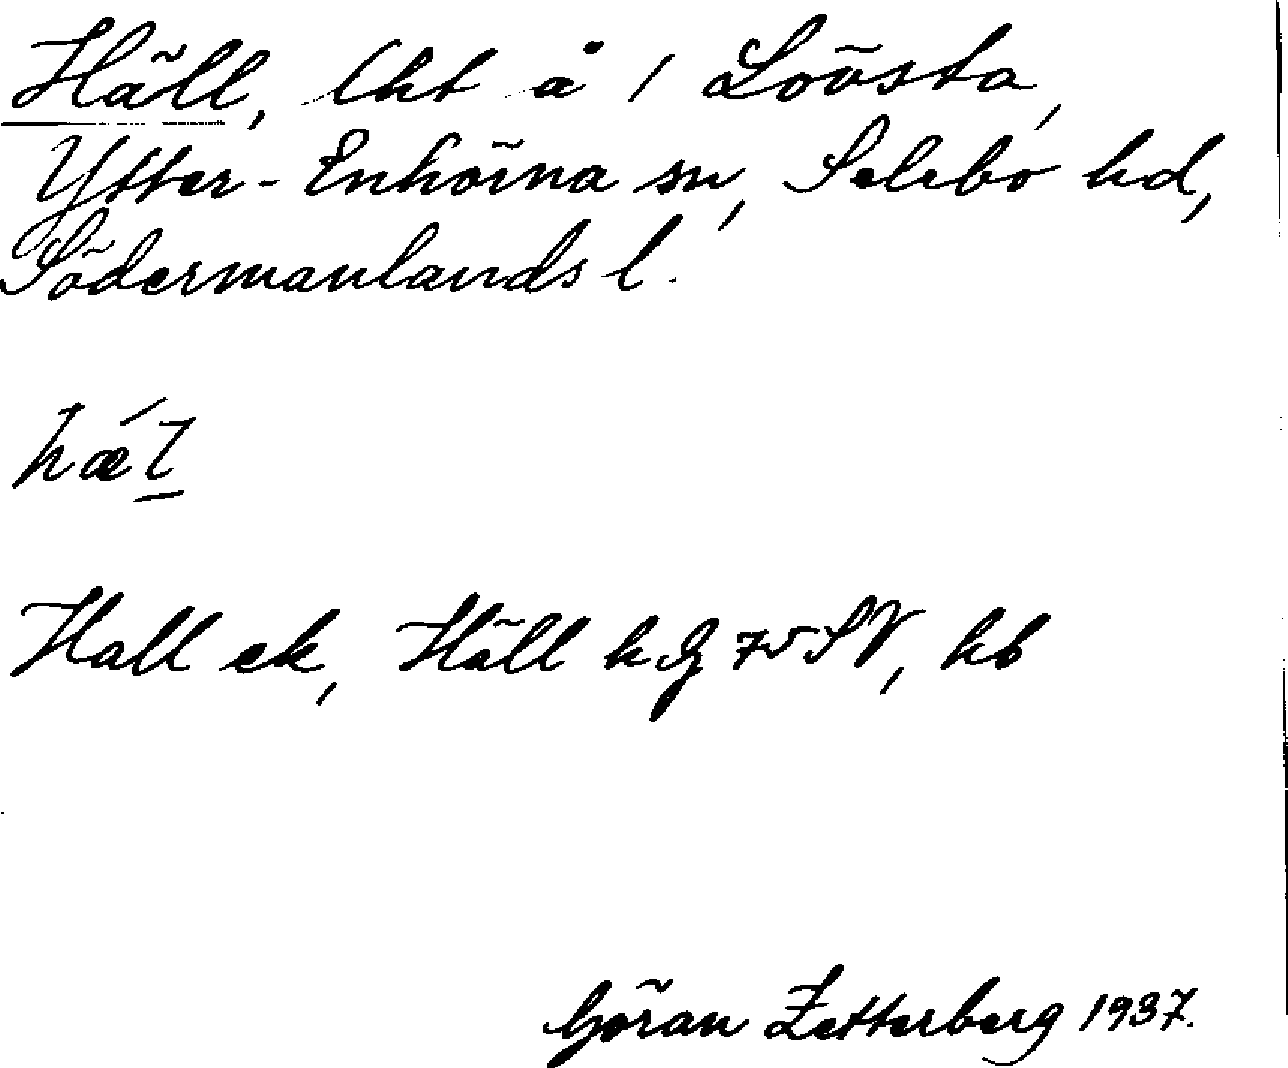 Häll, lht å 1 Lövsta,
Ytter-Enhörna sn, Selebo hd,
Södermanlands l.
hǽl
Hall ek, Häll kG 75 SV, hb
Göran Zetterberg 1937.